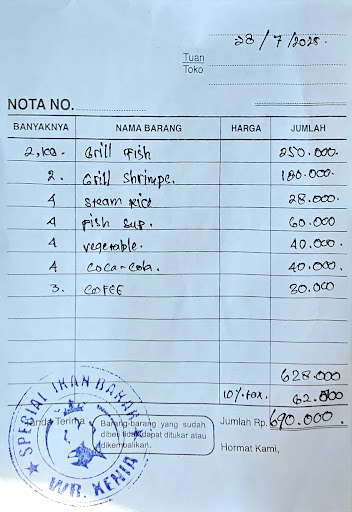 28/7/2025.
Tuan
Toko
NOTA NO.
BANYAKNYA NAMA BARANG HARGA JUMLAH
2, kg. Grill Fish 250.000.
2. Grill Shrimpc. 180.000.
4 Steam Rice 28.000.
4 Fish Sup. 60.000
4 vegetable. 40.000.
4 coca-cola. 40.000.
3. COFEE 30.000
628.000
10%.tax. 62.800
Tanda Terima
Barang-barang yang sudah
dibeli tidak dapat ditukar atau
dikembalikan.
Jumlah Rp. 690.000.
Hormat Kami,
SPECIAL IKAN BAKAR
WR. KENIA